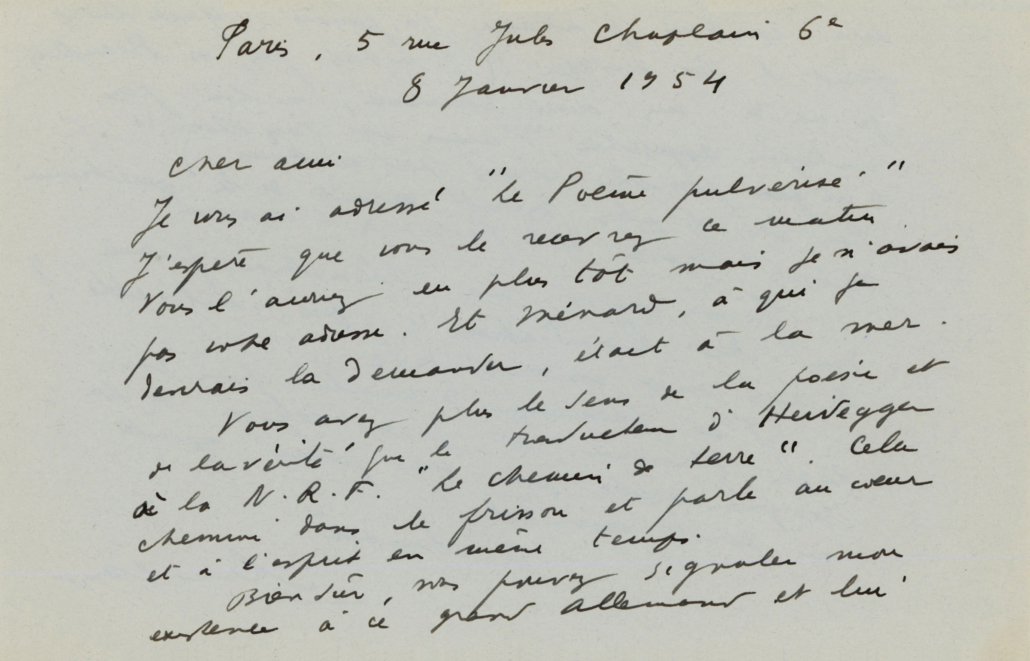 Paris, 5 rue Jules Chaplain 6e
8 Janvier 1954
Cher ami
Je vous ai adressé "Le Poème pulvérisé."
J'espère que vous le recevrez ce matin
Vous l'auriez eu plus tôt mais je n'avais
pas votre adresse. Et Ménard, à qui je
devrais la demander, était à la mer.
Vous avez plus le sens de la poésie et
de la vérité que le traducteur d'Heidegger
à la N.R.F. "Le chemin de terre". Cela
chemine dans le frisson et parle au cœur
et à l'esprit en même temps.
Bien sûr, vous pouvez signaler mon
existence à ce grand Allemand et lui